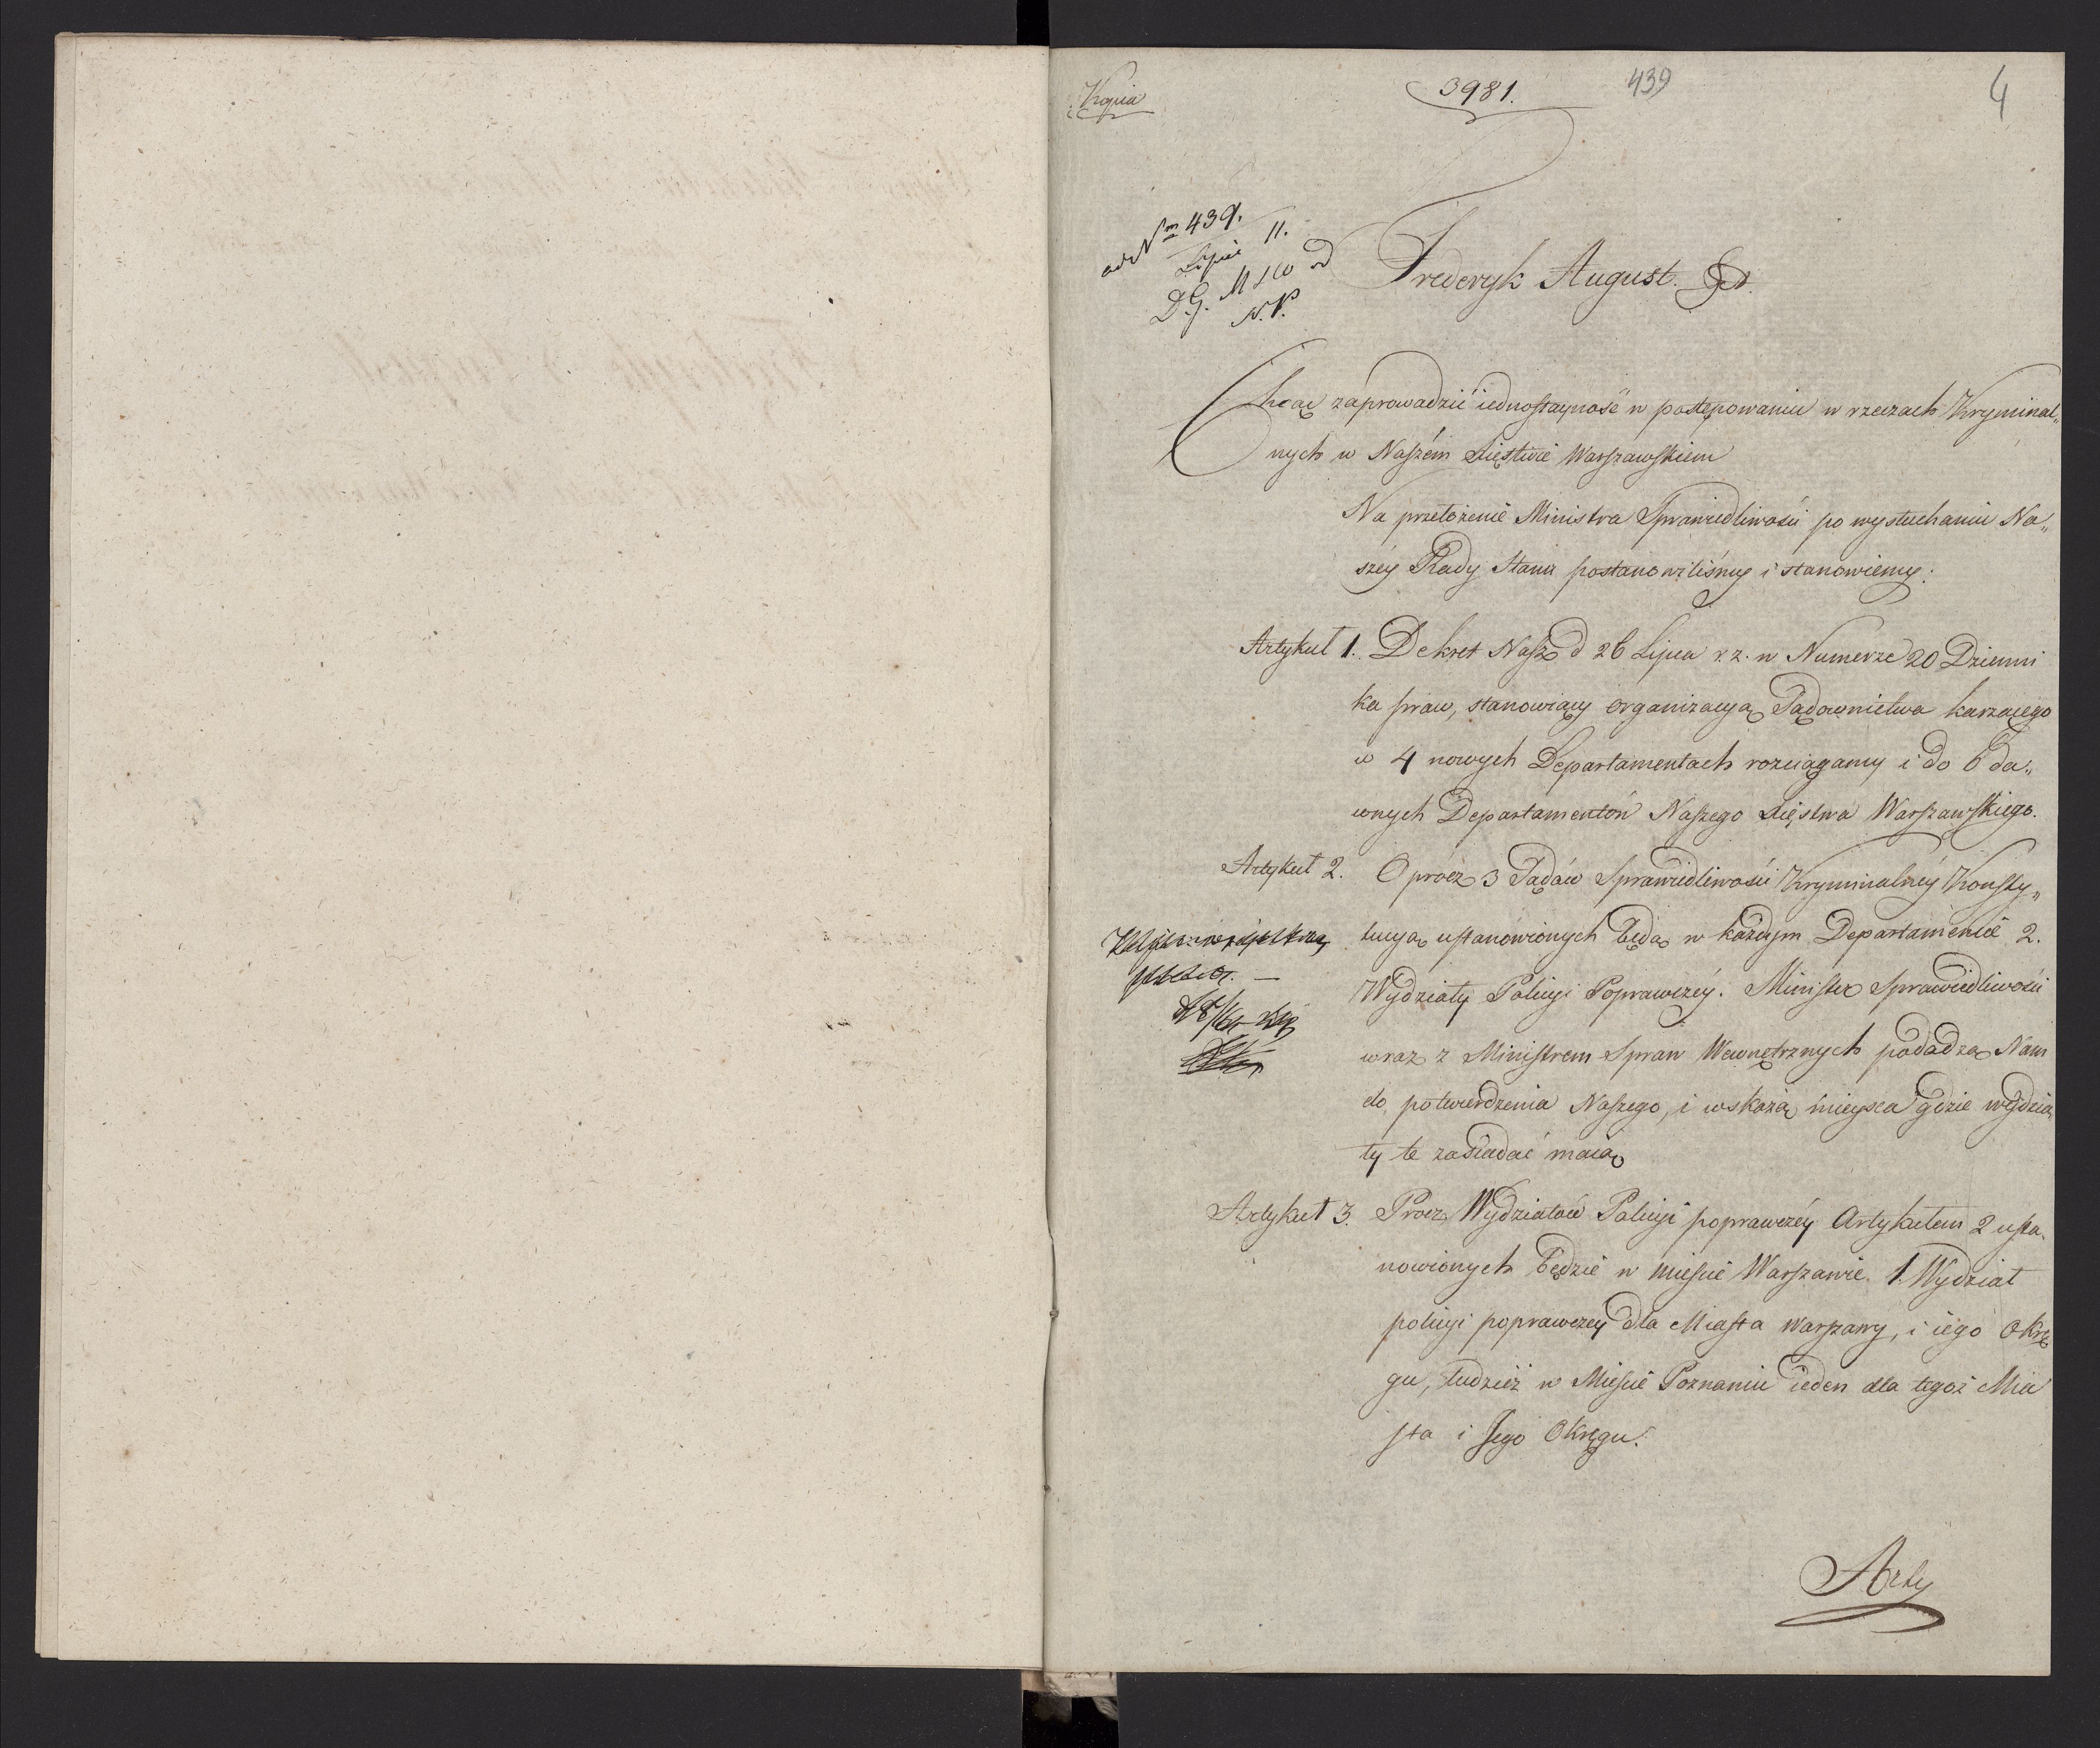 Kopia
3981.
439
4
ad Nm 439.
Lipiec 11.
D.G.
N.P.
Frederyk August. &c.
Chcąc zaprowadzić iednostayność w postępowaniu w rzeczach Kryminal„
nych w Naszém Xięstwie Warszawskiem
Na przełożenie Ministra Sprawiedliwości po wysłuchaniu Na„
széy Rady Stanu postanowiliśmy i stanowiemy:
Artykuł 1. Dekret Nasz d 26 Lipca r. z. w Numerze 20 Dzienni
ka praw, stanowiący organizacyą Sądownictwa karzącego
w 4 nowych Departamentach rozciągamy i do 6 da„
wnych Departamentów Naszego Xięstwa Warszawskiego.
Artykuł 2. Oprócz 3 Sądów Sprawiedliwości Kryminalnéy Konsty„
tucyą ustanowionych będą w każdym Departamencie 2.
Wydziały Policyi Poprawczéy. Minister Sprawiedliwości
wraz z Ministrem Spraw Wewnętrznych podadzą Nam
do potwierdzenia Naszego, i wskażą mieysca gdzie wydzia
ły te zasiadać maią
Artykuł 3. Prócz Wydziałów Policyi poprawczéy Artykułem 2 usta„
nowionych będzie w mieście Warszawie 1. Wydział
policyi poprawczey dla Miasta Warszawy, i iego Okrę
gu, tudzież w Mieście Poznaniu ieden dla tegoż Mia
sta i Jego Okręgu.
Arty